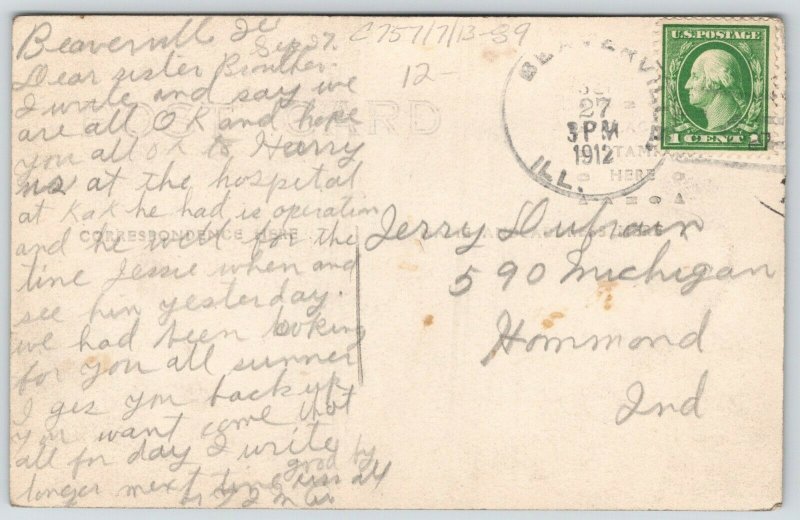 Beaverville Ill
Sep 27.
C757/7/13-89
12-
Dear sister Brouther.
I write and say we
are all OK and hope
you all OK to Harry
at the hospital
at KaK he had is operation
and he well for the
time Jessie when and
see him yesterday.
we had been looking
for you all summer
I ges you back up
you want come that
all for day I write
longer next time
good by
POST CARD
CORRESPONDENCE HERE
BEAVERVILLE
27
3 PM
1912
ILL.
U.S. POSTAGE
1 CENT 1
STAMP
HERE
Jerry Dufrain
590 Michigan
Hommond
Ind